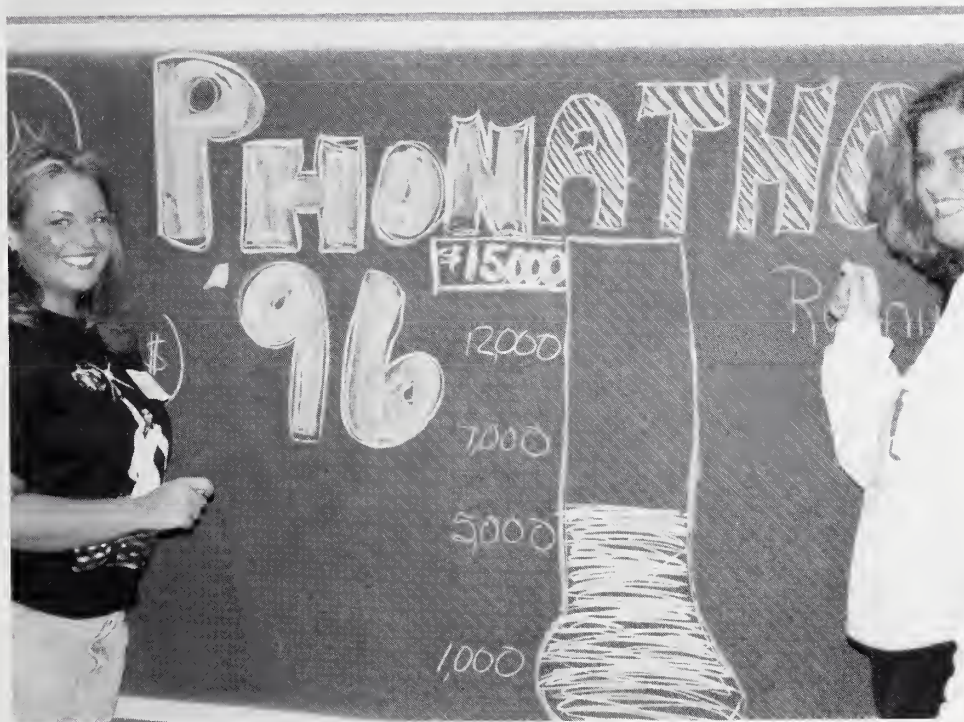 PHONATHO
'96
$15,000
12,000
7,000
$
5,000
1,000